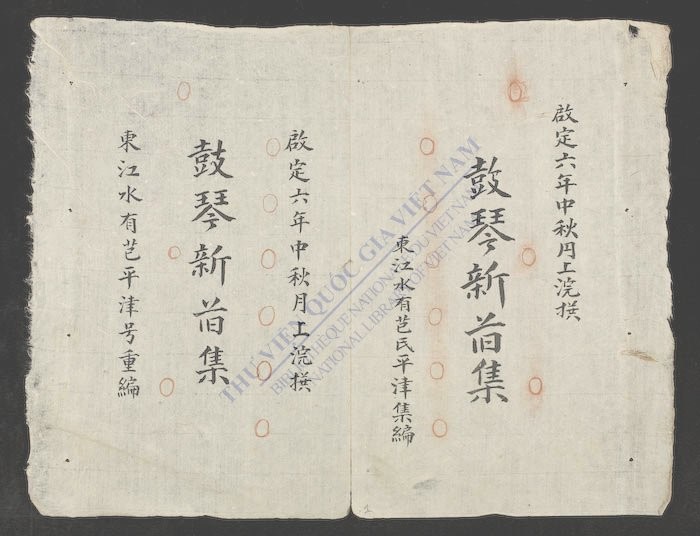 啟定六年中秋月上浣撰
鼓琴新首集
東江水有芑民平津集編
啟定六年中秋月上浣撰
鼓琴新首集
東江水有芑平津号重編
THƯ VIỆN QUỐC GIA VIỆT NAM
BIBLIOTHEQUE NATIONALE DU VIETNAM
NATIONAL LIBRARY OF VIETNAM